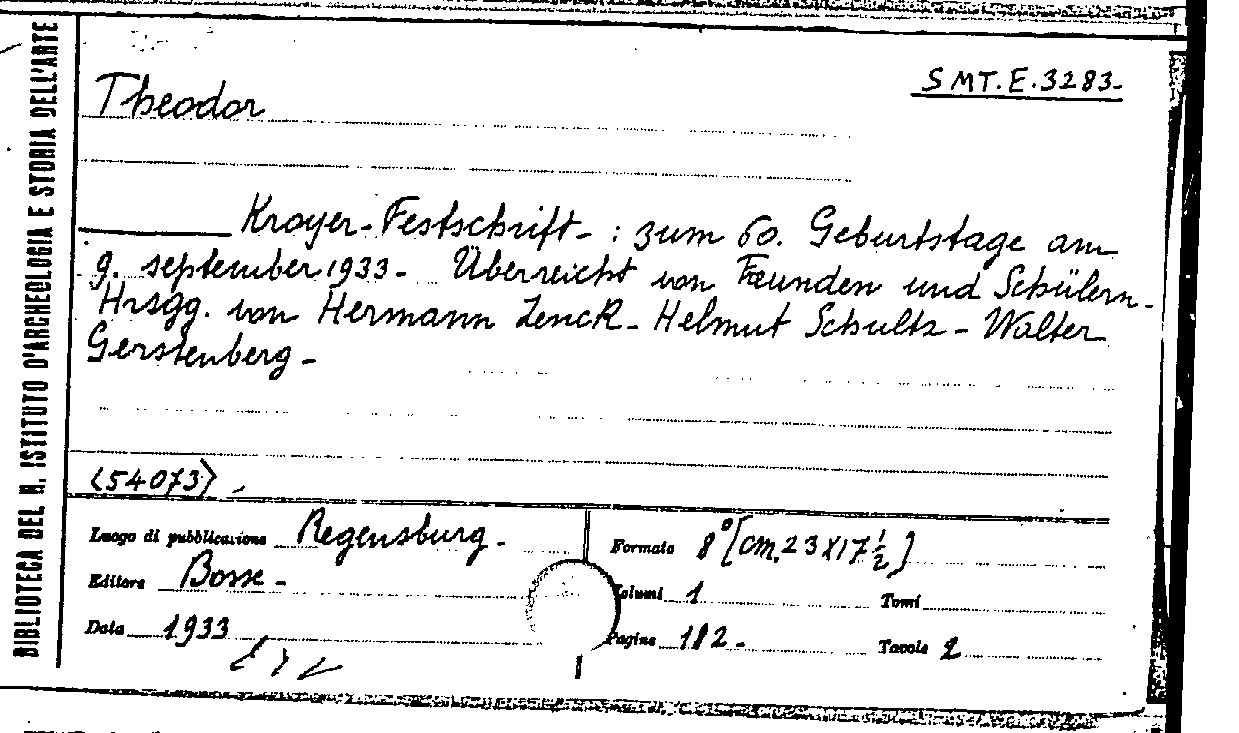 BIBLIOTECA DEL R. ISTITUTO D'ARCHEOLOGIA E STORIA DELL'ARTE
SMT.E.3283-
Theodor
Kroyer-Festschrift- : zum 60. Geburtstage am
9. september 1933- Überreicht von Freunden und Schülern-
Hrsgg. von Hermann Zenck- Helmut Schultz - Walter
Gerstenberg-
(54073)
Luogo di pubblicazione Regensburg.
Formato 8° [cm. 23 X 17 1/2]
Editore Bosse-
Volumi 1 Tomi
Data 1933
Pagine 182- Tavole 2